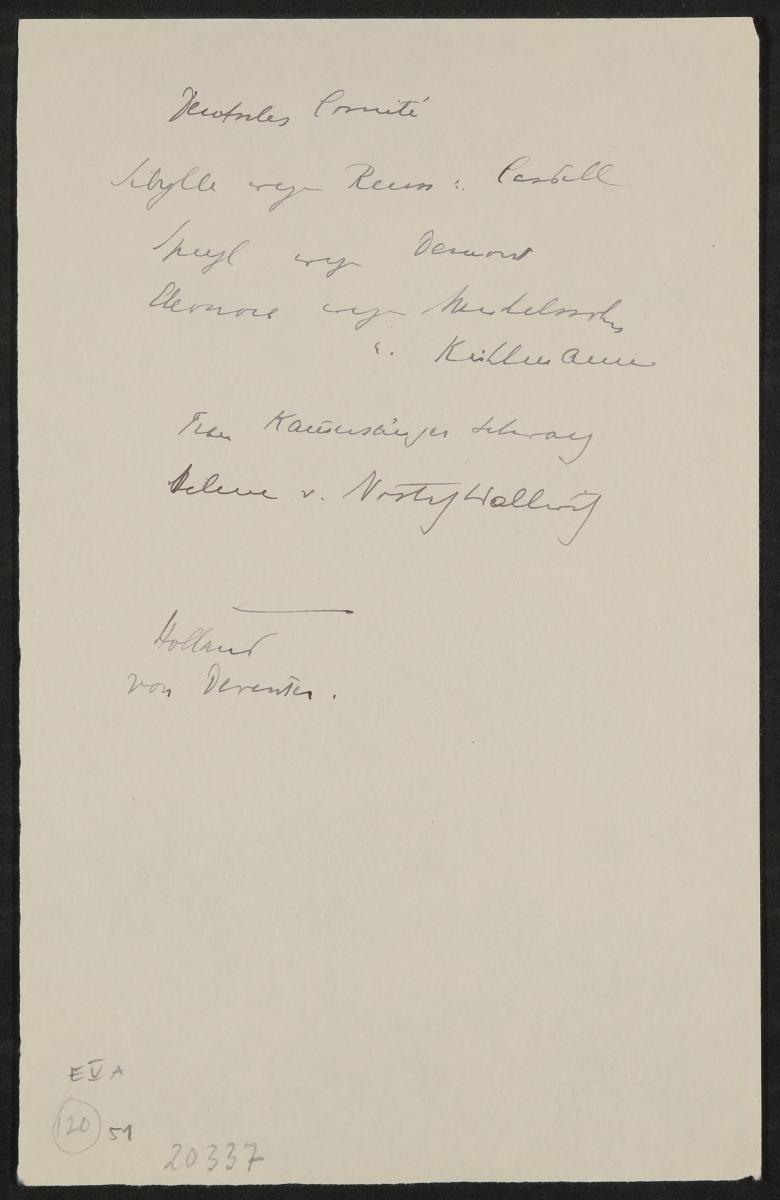 Deutsches Comité
Sibylle wegen Reuss u. Castell
Spiegl wegen
Eleonore wegen Mendelssohn
u. Kühlmann
Frau Kammersänger
Helene v. Nostiz Wallwitz
Holland
von Deventer.
E V A
120 51
20337